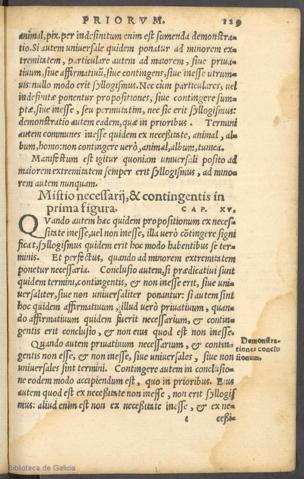 PRIORVM. 129
animal, pix. per indefinitum enim est sumenda demonstra-
tio. Si autem uniuersale quidem ponatur ad minorem ex-
tremitatem, particulare autem ad maiorem, siue priua-
tiuum, siue affirmatiuũ, siue contingens, siue inesse utrum-
uis: nullo modo erit syllogismus. Nec cum particulares, uel
indefinitæ ponentur propositiones, siue contingere sum-
ptæ, siue inesse, seu permutatim, nec sic erit syllogismus:
demonstratio autem eadem, quæ in prioribus. Termini
autem communes inesse quidem ex necessitate, animal, al-
bum, homo: non contingere uerò, animal, album, tunica.
Manifestum est igitur quoniam uniuersali posito ad
maiorem extremitatem semper erit syllogismus, ad mino-
rem autem nunquam.
Mistio necessarij, & contingentis in
prima figura. CAP. XV.
QVando autem hæc quidem propositionum ex necess-
sitate inesse, uel non inesse, illa uerò cõtingere signi
ficat, syllogismus quidem erit hoc modo habentibus se ter-
minis. Et perfectus, quando ad minorem extremitatem
ponetur necessaria. Conclusio autem, si prædicatiui sunt
quidem termini, contingentis, & non inesse erit, siue uni-
uersaliter, siue non uniuersaliter ponantur: si autem sint
hoc quidem affirmatiuum, illud uerò priuatiuum, quan-
do affirmatiuum quidem fuerit necessarium, & contin-
gentis erit conclusio, & non eius quod est non inesse.
Quando autem priuatiuum necessarium, & contin-
gentis non esse, & non inesse, siue uniuersales, siue non
uniuersales sint termini. Contingere autem in conclusio-
ne eodem modo accipiendum est, quo in prioribus. Eius
autem quod est ex necessitate non inesse, non erit syllogis
mus: aliud enim est non ex necessitate inesse, & ex ne-
c cessi-
Demonstra-
tiones conclu
sionum.
Biblioteca de Galicia